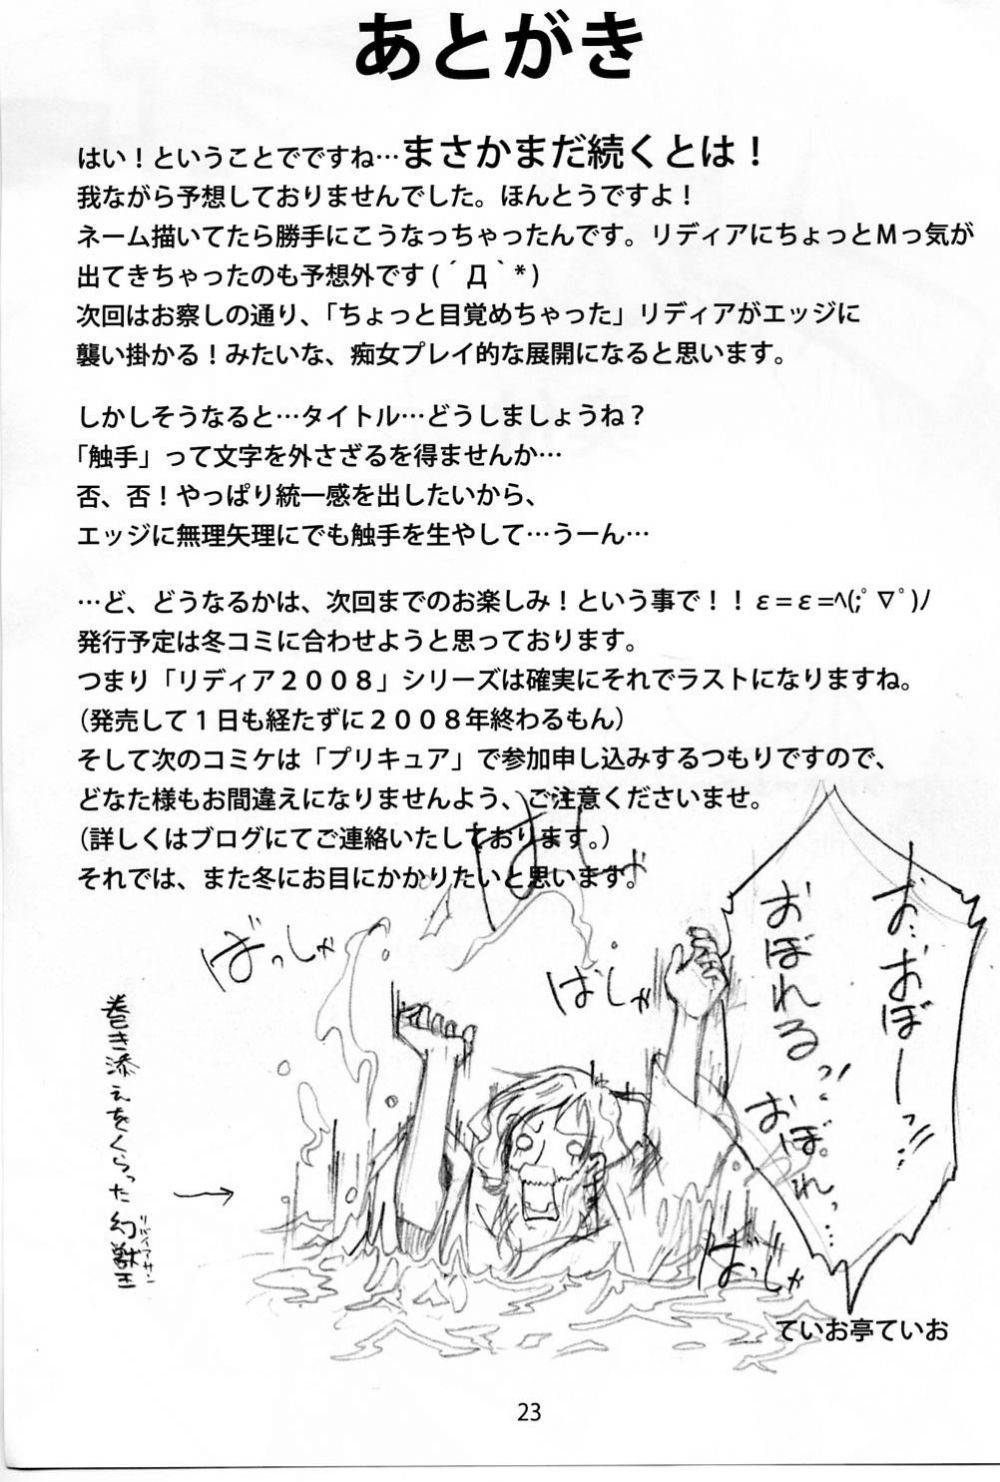 あとがき
はい！ということでですね…まさかまだ続くとは！
我ながら予想しておりませんでした。ほんとうですよ！
ネーム描いてたら勝手にこうなっちゃったんです。リディアにちょっとＭっ気が
出てきちゃったのも予想外です(´Д｀*)
次回はお察しの通り、「ちょっと目覚めちゃった」リディアがエッジに
襲い掛かる！みたいな、痴女プレイ的な展開になると思います。
しかしそうなると…タイトル…どうしましょうね？
「触手」って文字を外さざるを得ませんか…
否、否！やっぱり統一感を出したいから、
エッジに無理矢理にでも触手を生やして…うーん…
…ど、どうなるかは、次回までのお楽しみ！という事で！！ε＝ε=ﾍ(;ﾟ∇ﾟ)ﾉ
発行予定は冬コミに合わせようと思っております。
つまり「リディア２００８」シリーズは確実にそれでラストになりますね。
（発売して１日も経たずに２００８年終わるもん）
そして次のコミケは「プリキュア」で参加申し込みするつもりですので、
どなた様もお間違えになりませんよう、ご注意くださいませ。
（詳しくはブログにてご連絡いたしております。）
それでは、また冬にお目にかかりたいと思います。
ばしゃ
お…おぼーっ!!
おぼれるっ!
おぼれっ…
ばっしゃ
ばしゃ
巻き添えをくらった幻獣王
ばっしゃ
ていお亭ていお
23